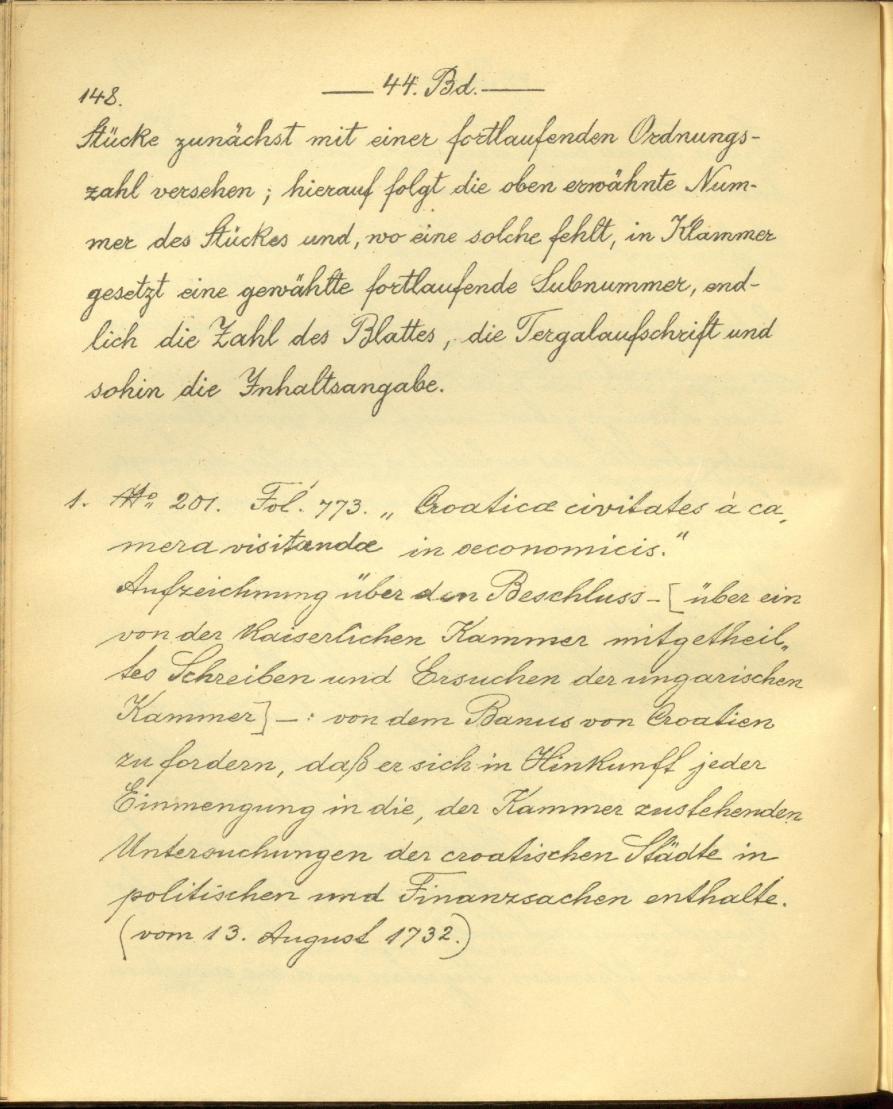 148.
44. Bd.
Stücke zunächst mit einer fortlaufenden Ordnungs-
zahl versehen; hierauf folgt die oben erwähnte Num-
mer des Stückes und, wo eine solche fehlt, in Klammer
gesetzt eine gewählte fortlaufende Subnummer, end-
lich die Zahl des Blattes, die Tergalaufschrift und
sohin die Inhaltsangabe.
1. No 201. Fol. 773. „Croaticæ civitates à ca„
mera visitandæ in oeconomicis."
Aufzeichnung über den Beschluss – [über ein
von der Kaiserlichen Kammer mitgetheil„
tes Schreiben und Ersuchen der ungarischen
Kammer] –: von dem Banus von Croatien
zu fordern, daß er sich in Hinkunft jeder
Einmengung in die, der Kammer zustehenden
Untersuchungen der croatischen Städte in
politischen und Finanzsachen enthalte.
(vom 13. August 1732.)